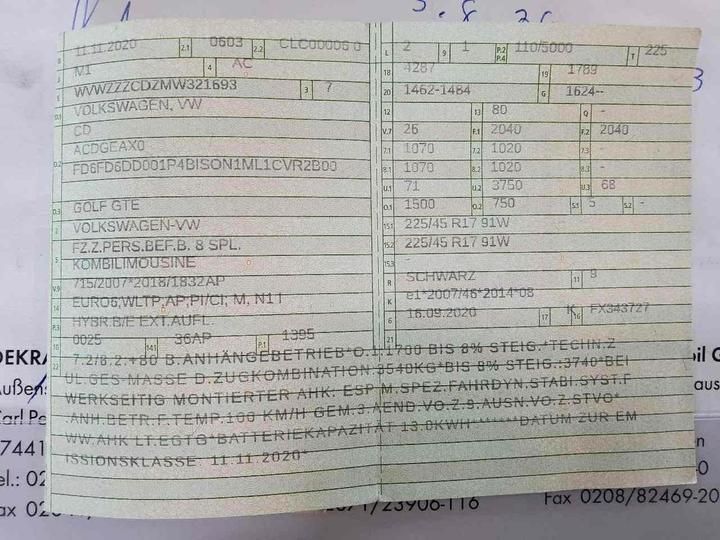 B 11.11.2020 2.1 0603 2.2 CLC00006 0
J M1 4 AC
E WVWZZZCDZMW321693 3 7
D.1 VOLKSWAGEN, VW
CD
D.2 ACDGEAX0
FD6FD6DD001P4BISON1ML1CVR2B00
D.3 GOLF GTE
2 VOLKSWAGEN-VW
5 FZ.Z.PERS.BEF.B. 8 SPL.
KOMBILIMOUSINE
V.9 715/2007*2018/1832AP
14 EURO6;WLTP;AP;PI/CI; M, N1 I
P.3 HYBR.B/E EXT.AUFL.
10 0025 14.1 36AP P.1 1395
L 2 9 1 P.2 P.4 110/5000 T 225
18 4287 19 1789
20 1462-1484 G 1624--
12 - 13 80 Q -
V.7 26 F.1 2040 F.2 2040
7.1 1070 7.2 1020 7.3 -
8.1 1070 8.2 1020 8.3 -
U.1 71 U.2 3750 U.3 68
O.1 1500 O.2 750 S.1 5 S.2 -
15.1 225/45 R17 91W
15.2 225/45 R17 91W
15.3 -
R SCHWARZ 11 9
K e1*2007/46*2014*08
6 16.09.2020 17 K 16 FX343727
21
22 7.2/8.2:+80 B.ANHÄNGEBETRIEB*O.1:1700 BIS 8% STEIG.*TECHN.Z
UL.GES-MASSE D.ZUGKOMBINATION:3540KG*BIS 8% STEIG.:3740*BEI
WERKSEITIG MONTIERTER AHK: ESP M.SPEZ.FAHRDYN.STABI.SYST.F
.ANH.BETR.F.TEMP.100 KM/H GEM.3.AEND.VO.Z.9.AUSN.VO.Z.STVO*
WW.AHK LT.EGTG*BATTERIEKAPAZITÄT 13.0KWH*******DATUM ZUR EM
ISSIONSKLASSE: 11.11.2020*
DEKRA
Außens
Carl Pe
7441
el.: 02
Fax 0208/82469-20